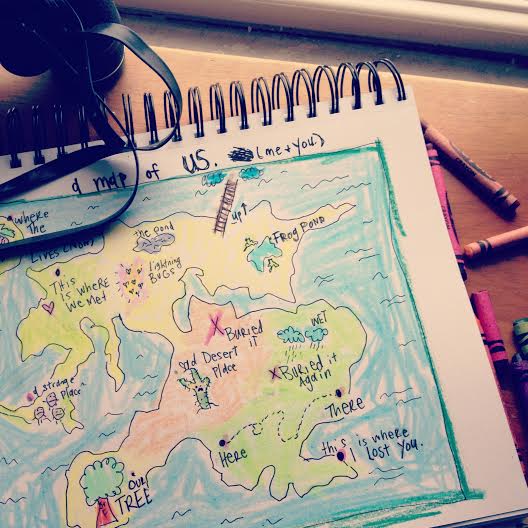 a map of us. (me + you.)
where
the
LIVES (NOW)
the pond
up↑
FROG POND
THIS
IS WHERE
we met
lightning
BUGS
X BURied
it
WET
SAd DESERT
PlAce
X BURied it
Again
a strange
place
THERE
HeRe
this is where
I lost You.
OUR
TREE